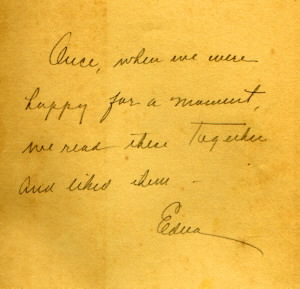 Once, when we were
happy for a moment,
we read these together
and liked them -
Edna